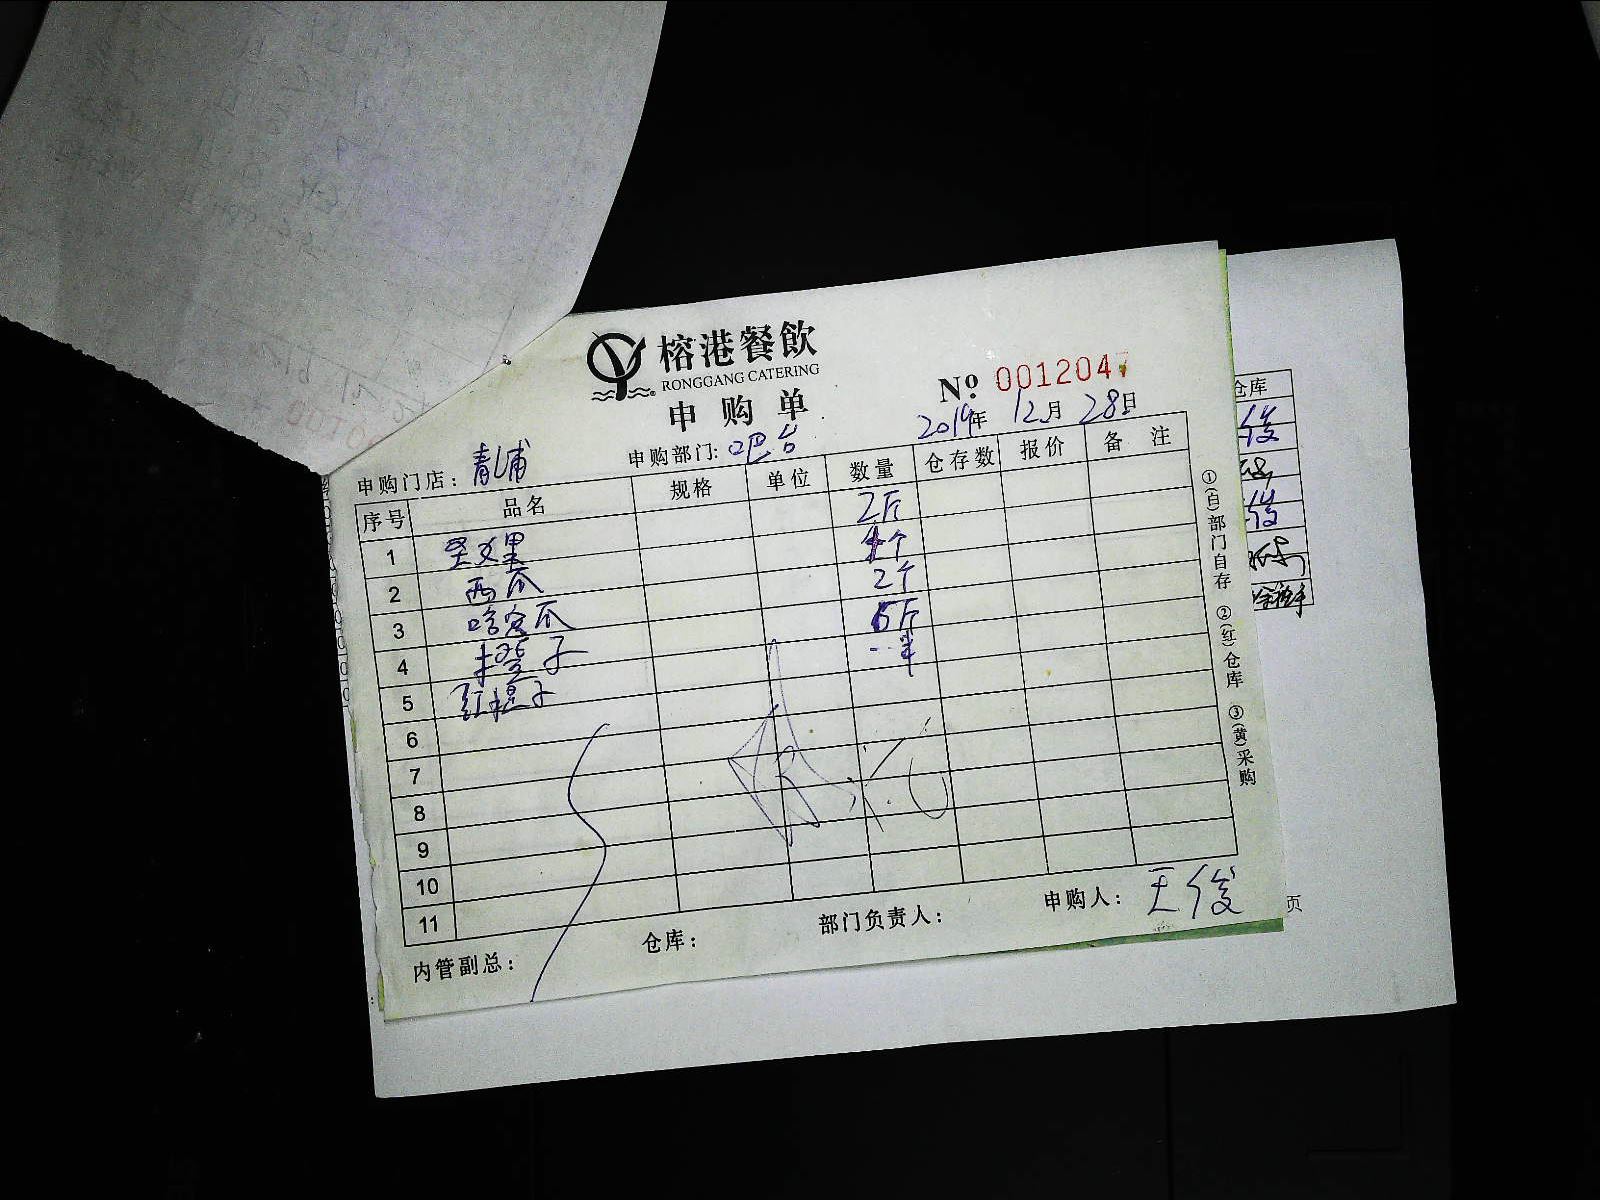 榕港餐飲
RONGGANG CATERING
申购单
Nº 0012047
2019年 12月 28日
申购门店：青浦 申购部门：吧台
序号 品名 规格 单位 数量 仓存数 报价 备注
1 圣女果 2斤
2 西瓜 4个
3 哈密瓜 2个
4 橙子 5斤
5 红提子 一单
6
7
8
9
10
11
内管副总： 仓库： 部门负责人： 申购人：王俊
①(白)部门自存 ②(红)仓库 ③(黄)采购
仓库
俊
俊
页